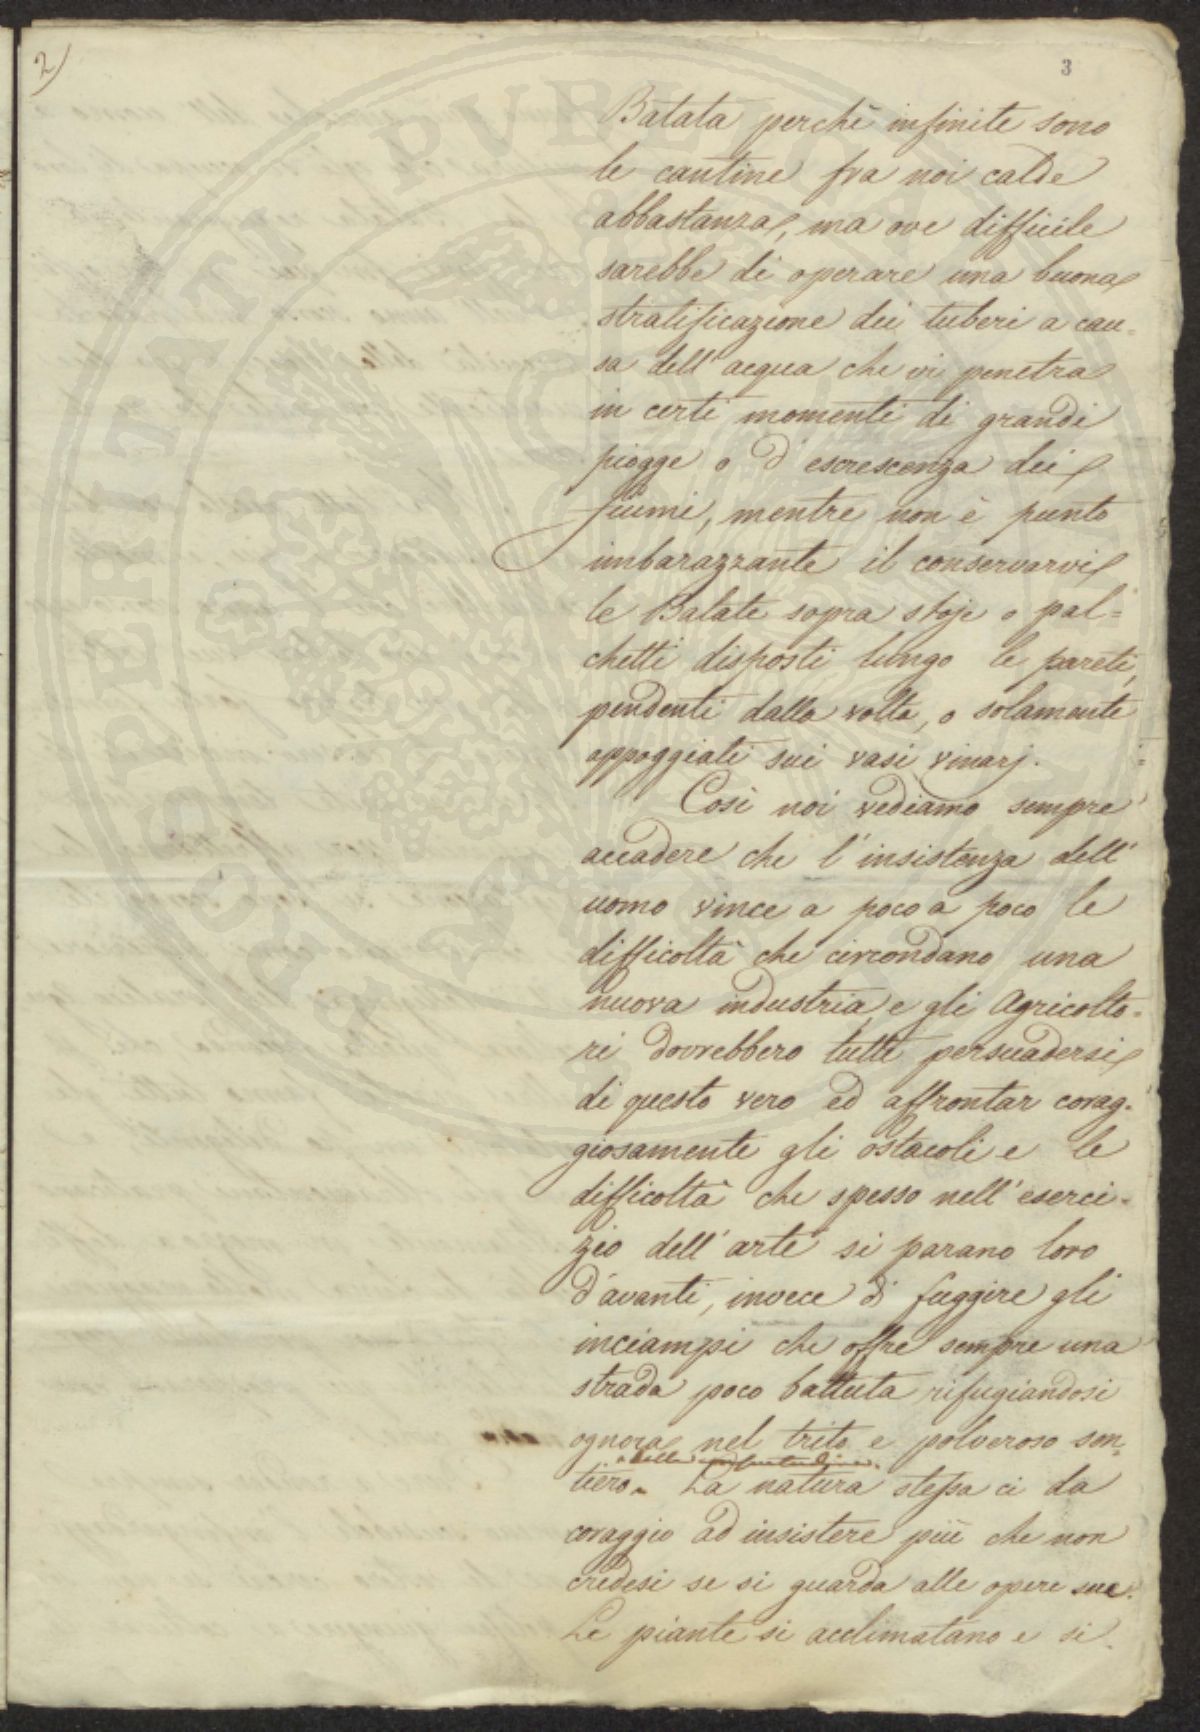 2)
3
Batata perchè infinite sono
le cantine fra noi calde
abbastanza, ma ove difficile
sarebbe di operare una buona
stratificazione dei tuberi a cau-
sa dell'acqua che vi penetra
in certi momenti di grandi
piogge o d'escrescenza dei
fiumi, mentre non è punto
imbarazzante il conservarvi
le Batate sopra stoje o pal-
chetti disposti lungo le pareti,
pendenti dalla volta, o solamente
appoggiati sui vasi vinarj.
Così noi vediamo sempre
accadere che l'insistenza dell'
uomo vince a poco a poco le
difficoltà che circondano una
nuova industria, e gli Agricolto-
ri dovrebbero tutti persuadersi
di questo vero ed affrontar corag-
giosamente gli ostacoli e le
difficoltà che spesso nell'eserci-
zio dell'arte si parano loro
d'avanti, invece di fuggire gli
inciampi che offre sempre una
strada poco battuta rifugiandosi
ognora nel trito e polveroso sen-
tiero. La natura stessa ci da
coraggio ad insistere più che non
credesi se si guarda alle opere sue.
Le piante si acclimatano e si
PROSPERITATI PVBLICAE